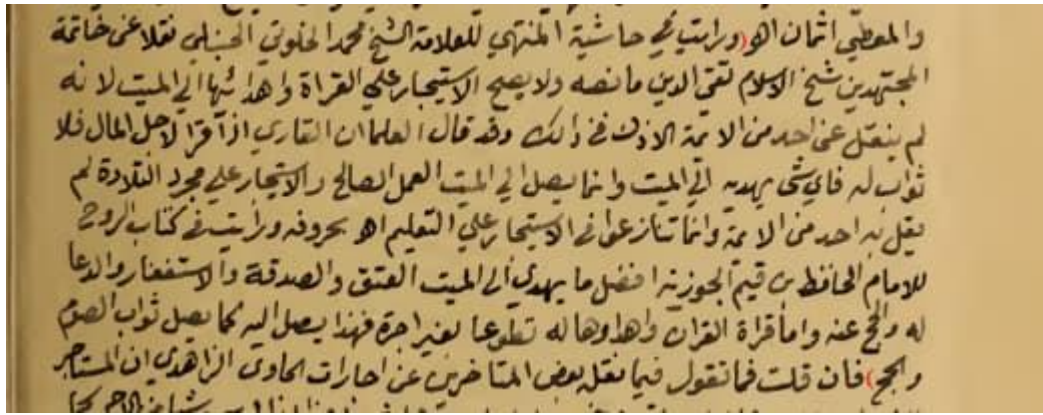 والمعطي اثمان اهـ (ورايت في حاشية المنتهي للعلامة الشيخ محمد الخلوتي الحنبلي نقلا عن خاتمة
المجتهدين شيخ الاسلام تقي الدين ما نصه ولا يصح الاستيجار علي القراة واهدائها الي الميت لانه
لم ينقل عن احد من الايمة الاذن في ذالك وقد قال العلما ان القاري اذا قرا لاجل المال فلا
ثواب له فاي شي يهديه الي الميت وانما يصل الي الميت العمل الصالح والاستيجار علي مجرد التلاوة لم
يقل به احد من الايمة وانما تنازعوا في الاستيجار علي التعليم اهـ بحروفه ورايت في كتاب الروح
للامام الحافظ بن قيم الجوزية افضل ما يهدي الي الميت العتق والصدقة والاستغفار والدعا
له والحج عنه واما قراة القران واهداوها له تطوعا بغير اجرة فهذا يصل اليه كما يصل ثواب الصوم
والحج) فان قلت فما تقول فيما نقله بعض المتاخرين عن اجارات الحاوي الزاهدي ان المستاجر